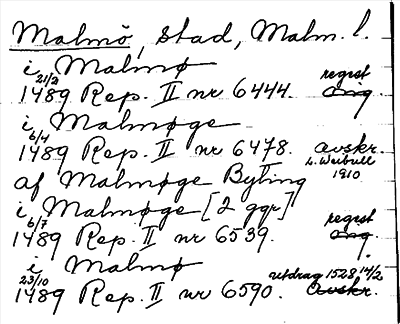 Malmö, stad, Malm. l.
i Malmø
21/2 1489 Rep. II nr 6444. regist orig.
i Malmøge
6/4 1489 Rep. II nr 6478. avskr. L. Weibull 1910
af Malmøge Byting
i Malmøge [2 ggr]
6/7 1489 Rep. II nr 6539. regist orig.
i Malmø
23/10 1489 Rep. II nr 6590. utdrag 1528 14/2 avskr.